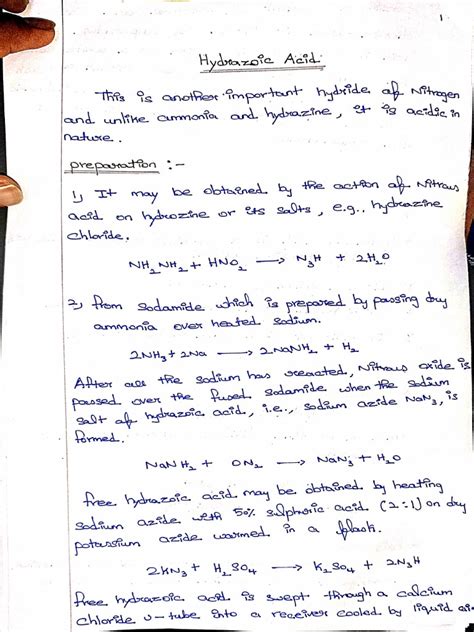 1
Hydrazoic Acid.
This is another important hydride of Nitrogen
and unlike ammonia and hydrazine, it is acidic in
nature.
preparation :-
1) It may be obtained by the action of Nitrous
acid on hydrozine or its salts, e.g., hydrazine
chloride.
NH₂NH₂ + HNO₂ ⟶ N₃H + 2H₂O
2) from sodamide which is prepared by passing dry
ammonia over heated sodium.
2NH₃ + 2Na ⟶ 2NaNH₂ + H₂
After all the sodium has reacted, Nitrous oxide is
passed over the fused sodamide when the sodium
salt of hydrazoic acid, i.e., sodium azide NaN₃, is
formed.
NaNH₂ + ON₂ ⟶ NaN₃ + H₂O
free hydrazoic acid may be obtained by heating
sodium azide with 50% sulphuric acid (2:1) on dry
potassium azide warmed in a flask.
2KN₃ + H₂SO₄ ⟶ K₂SO₄ + 2N₃H
free hydrazoic acid is swept through a calcium
chloride U-tube into a receiver cooled by liquid air